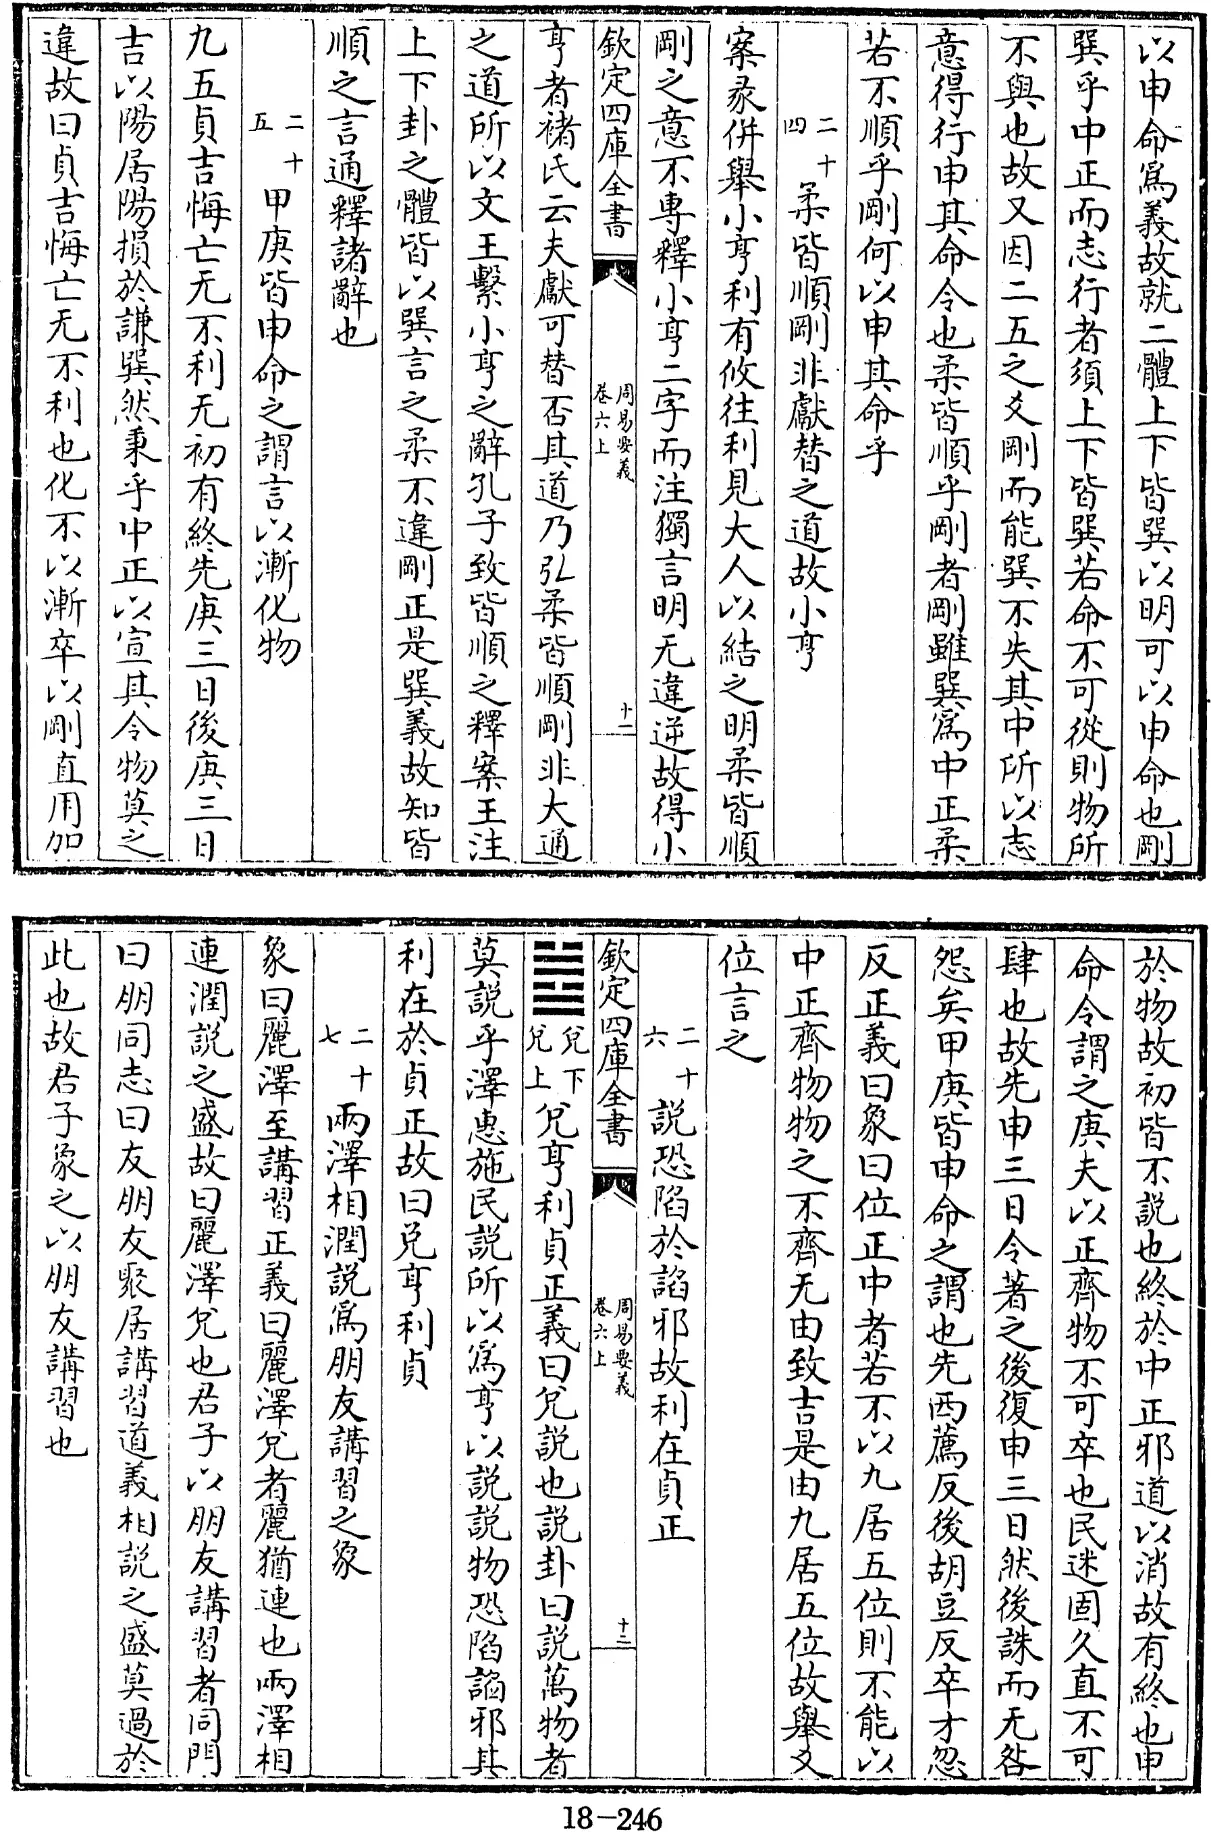 以申命爲義故就二體上下皆巽以明可以申命也剛
巽乎中正而志行者須上下皆巽若命不可從則物所
不與也故又因二五之爻剛而能巽不失其中所以志
意得行申其命令也柔皆順乎剛者剛雖巽爲中正柔
若不順乎剛何以申其命乎
二十四 柔皆順剛非獻替之道故小亨
案彖併舉小亨利有攸往利見大人以結之明柔皆順
剛之意不專釋小亨二字而注獨言明无違逆故得小
欽定四庫全書 周易要義 卷六上 十一
亨者褚氏云夫獻可替否其道乃弘柔皆順剛非大通
之道所以文王繫小亨之辭孔子致皆順之釋案王注
上下卦之體皆以巽言之柔不違剛正是巽義故知皆
順之言通釋諸辭也
二十五 甲庚皆申命之謂言以漸化物
九五貞吉悔亡无不利无初有終先庚三日後庚三日
吉以陽居陽損於謙巽然秉乎中正以宣其令物莫之
違故曰貞吉悔亡无不利也化不以漸卒以剛直用加
於物故初皆不說也終於中正邪道以消故有終也申
命令謂之庚夫以正齊物不可卒也民迷固久直不可
肆也故先申三日令著之後復申三日然後誅而无咎
怨矣甲庚皆申命之謂也先西薦反後胡豆反卒才忽
反正義曰象曰位正中者若不以九居五位則不能以
中正齊物物之不齊无由致吉是由九居五位故舉爻
位言之
二十六 說恐陷於諂邪故利在貞正
欽定四庫全書 周易要義 卷六上 十二
䷹兌下兌上 兌亨利貞正義曰兌說也說卦曰說萬物者
莫說乎澤惠施民說所以爲亨以說說物恐陷諂邪其
利在於貞正故曰兌亨利貞
二十七 兩澤相潤說爲朋友講習之象
象曰麗澤至講習正義曰麗澤兌者麗猶連也兩澤相
連潤說之盛故曰麗澤兌也君子以朋友講習者同門
曰朋同志曰友朋友聚居講習道義相說之盛莫過於
此也故君子象之以朋友講習也
18-246